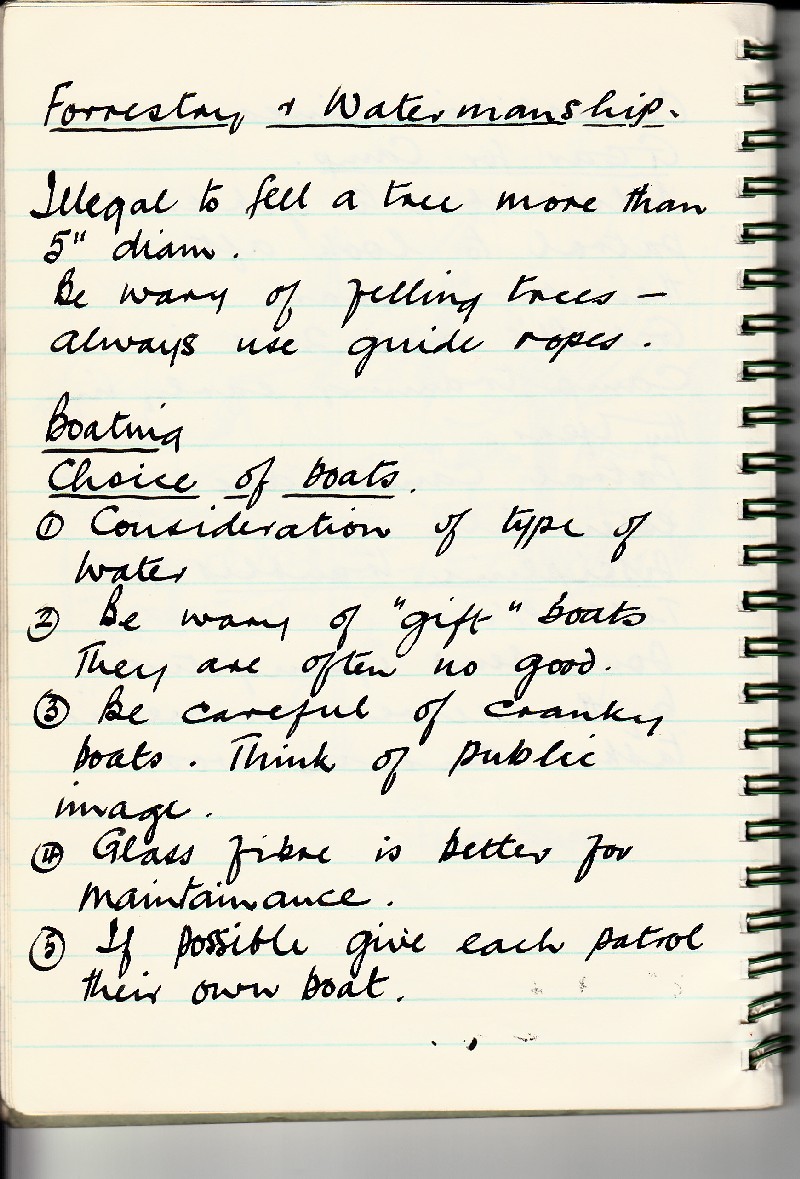 Forrestry & Watermanship.
Illegal to fell a tree more than
5" diam.
Be wary of felling trees —
always use guide ropes.
Boating
Choice of boats.
① Consideration of type of
water
② Be wary of "gift" boats
They are often no good.
③ Be careful of cranky
boats. Think of public
image.
④ Glass fibre is better for
maintainance.
⑤ If possible give each patrol
their own boat.